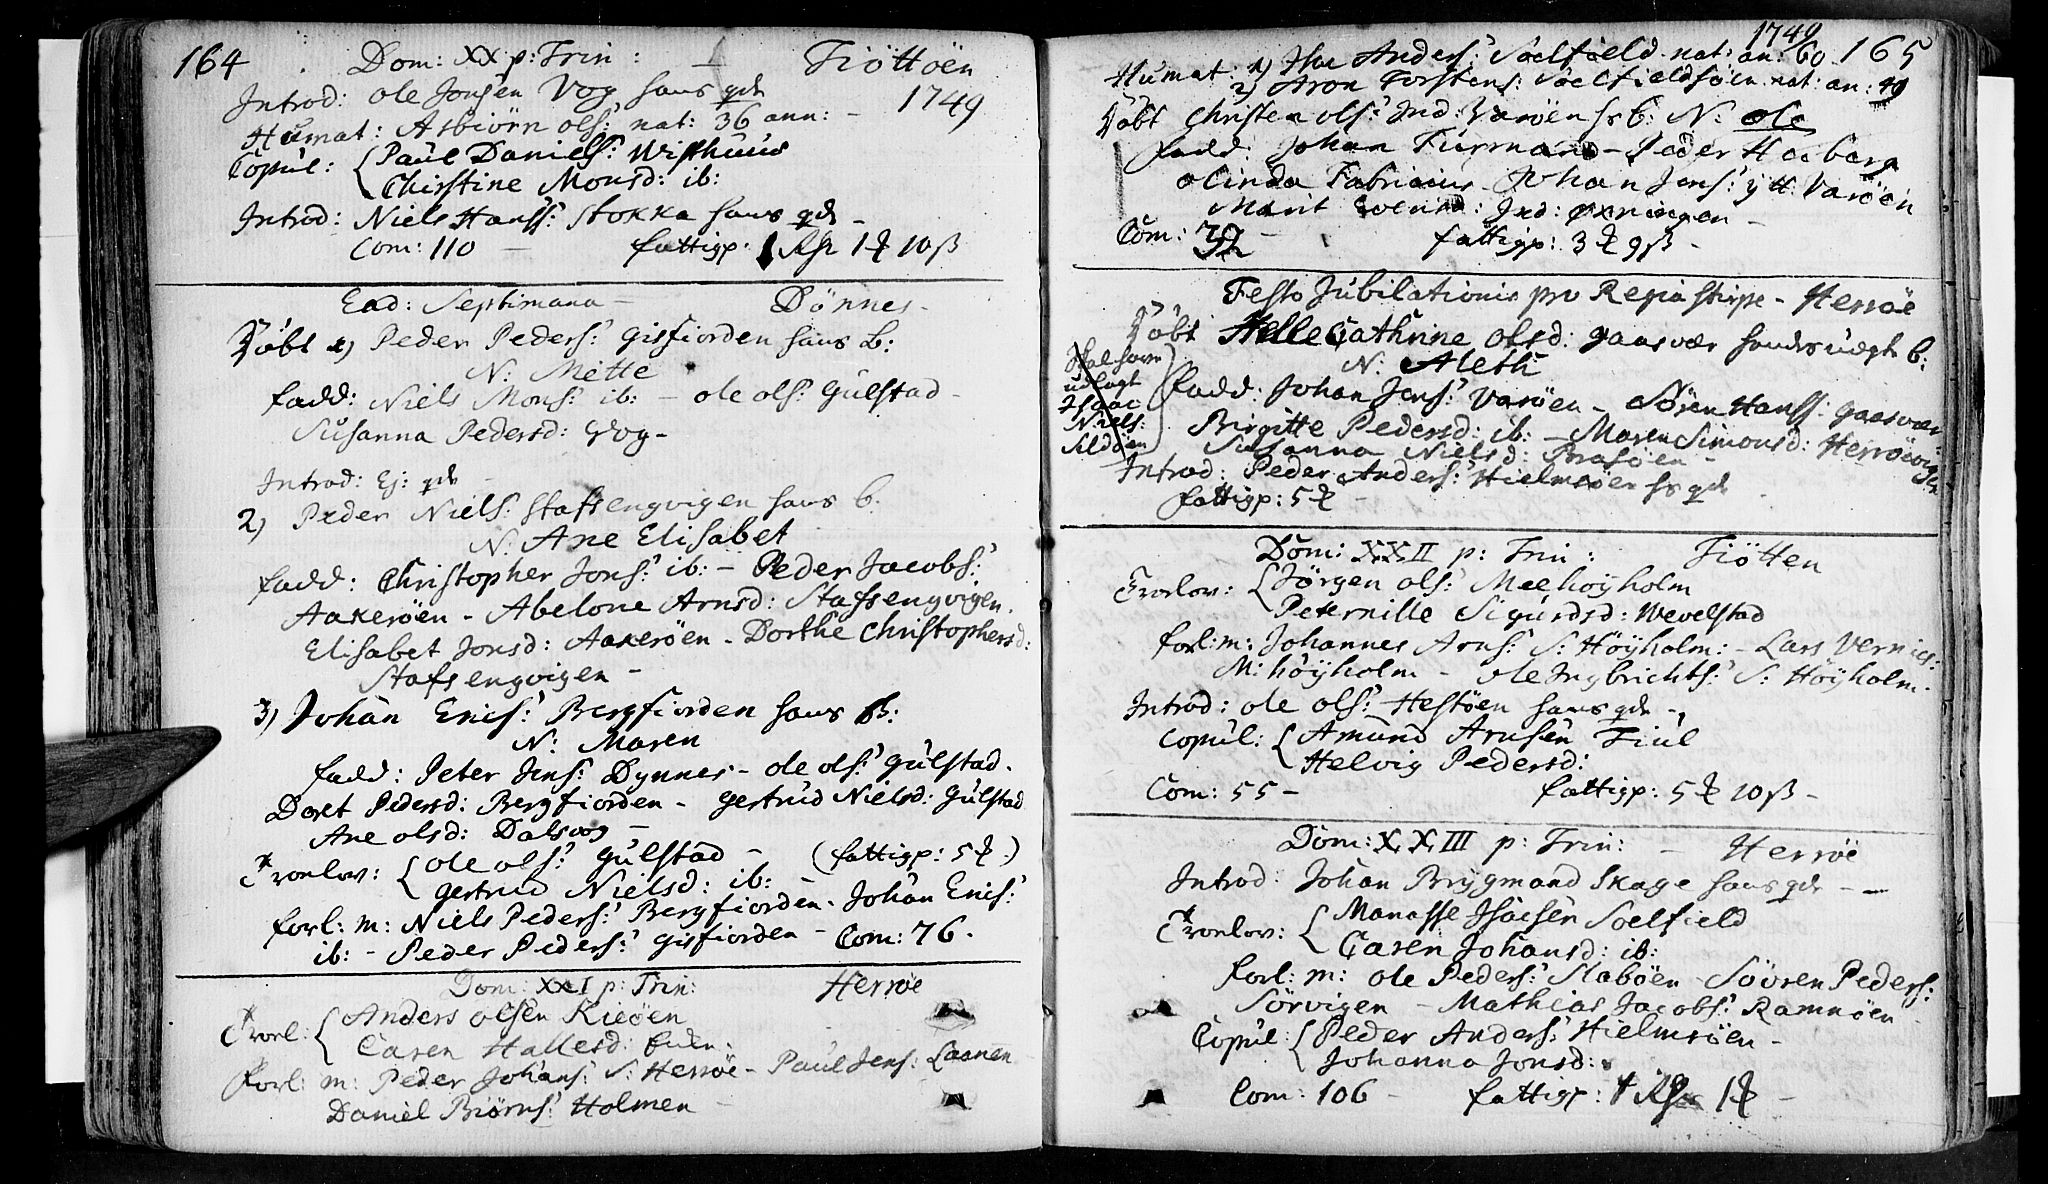 164 Dom: XX p: Trin: Tiöttöen
1749
Introd: Ole Jonsen Vog hans qde
Humat: Asbiörn ols: nat: 36 ann: -
Copul: Paul Daniels: Wisthuus
Christine Monsd: ib:
Introd: Niels Hanss: Stokka hans qde -
Com: 110 - fattigp: 1 Rdr 1 ¥ 10 ß
Ead: Septimana - Dönnes -
Döbt 1) Peder Peders: Gisfiorden hans B:
N: Mette
fadd: Niels Mons: ib: - ole ols: Gulstad -
Susanna Pedersd: Vog -
Introd: Ej: qde -
2) Peder Niels: Stafsengvigen hans b:
N: Ane Elisabet
fadd: Christopher Jons: ib: - Peder Jacobs:
Aakeröen - Abelone Arnsd: Stafsengvigen.
Elisabet Jonsd: Aakeröen - Dorthe Christophersd:
Stafsengvigen -
3) Johan Erics: Bergfiorden hans B:
N: Maren
fadd: Peter Jens: Dynnes - ole ols: Gulstad.
Doret Pedersd: Bergfiorden - Gertrud Nielsd: Gulstad
Ane olsd: Dalsvog -
Trovlov: Ole ols: Gulstad - (fattigp: 5 ¥.)
Gertrud Nielsd: ib: -
forl: m: Niels Peders: Bergfiorden. Johan Erics:
ib: - Peder Peders: Gisfiorden - Com: 76.
Dom: XXI p: Trin: Herröe
Trovl: Anders Olsen Rieöen
Caren Hallesd:
forl: m: Peder Johans: S: Herröe - Paul Jens: Laanen
Daniel Biörns: Holmen -
1749 165
Humat: 1) Anders: Soelfield nat: an: 60
2) Aron Torstens: Soelfieldsöen nat: an: 49
Döbt Christen ols: Ind: Varöen hs b: N: ole
fadd: Johan Fuurmand - Peder Heeberg
Olinda Fabricius Johan Jens: Varöen
Marit Evensd: Ind: Öxningen -
Com: - fattigp: 3 ¥ 9 ß -
Festo Jubilationis pro Regia Stirpe - Herröe
Döbt Helle Cathrine olsd: Gaasvær hendes uægte b:
N: Aleth
Skal have
udlagt
Isaac
Niels:
fadd: Johan Jens: Varöen - Sören Hanss: Gaasvær
Birgitte Pedersd: ib: - Maren Simonsd: Herröevigen
Susanna Nielsd: Brasöen -
Introd: Peder Anders: Hielmsöen hs qde
fattigp: 5 ¥ -
Dom: XXII p: Trin: Tiötten
Trovlov: Jörgen ols: Meehöyholm
Peternille Sigurdsd: Wevelstad
forl: m: Johannes Arns: S: Höyholm: - Lars Vernics:
M: höyholm - ole Ingbrichts: S: Höyholm.
Introd: ole ols: Hestöen hans qde -
Copul: Amund Arnsen Tiul
Helvig Pedersd:
Com: 55 - fattigp: 5 ¥ 10 ß -
Dom: XXIII p: Trin: - Herröe
Introd: Johan Brygmand Skage hans qde - -
Trovlov: Manasse Isacsen Soelfield
Caren Johansd: ib:
forl: m: ole Peders: Slaböen - Sövren Peders:
Sörvigen - Mathias Jacobs: Ramnöen
Copul: Peder Anders: Hielmsöen -
Johanna Jonsd:
Com: 106 - fattigp: 1 Rdr 1 ¥ -